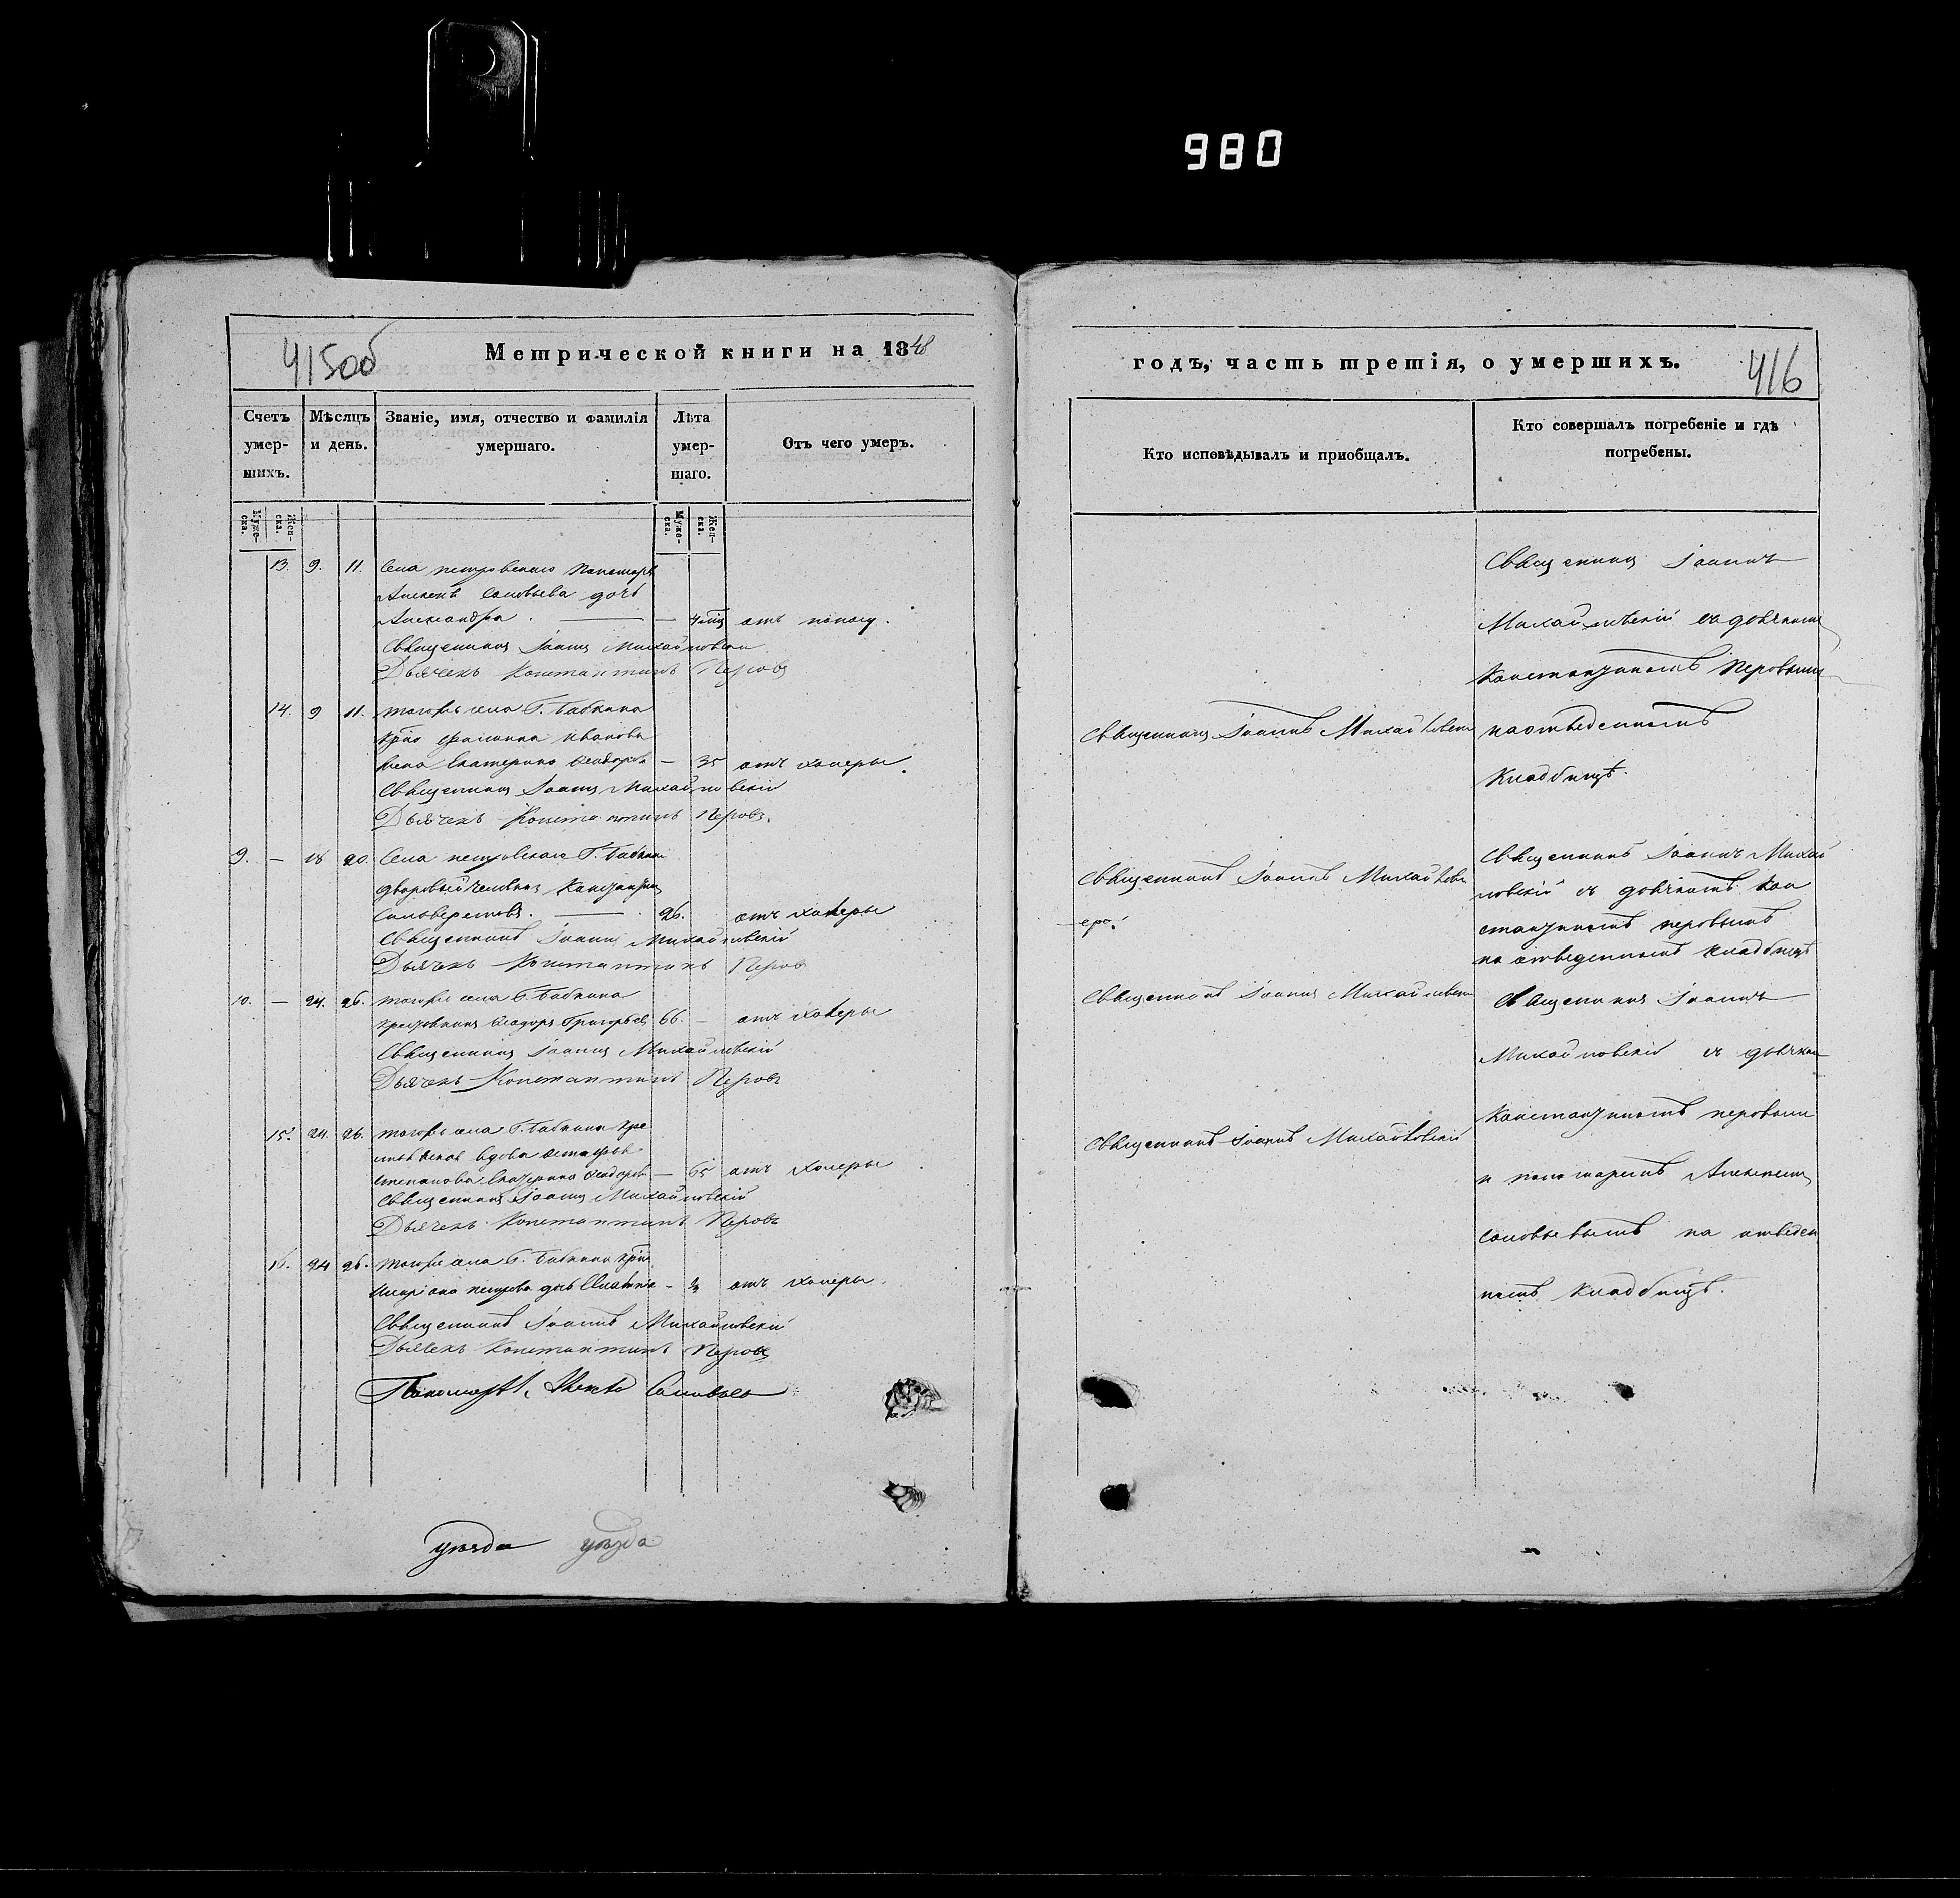 980
415об
Метрической книги на 1848
Счетъ умер-шихъ.
Мѣсяцъ и день.
Званіе, имя, отчество и фамилія умершаго.
Лѣта умер-шаго.
Отъ чего умеръ.
Муже-ска.
Жен-ска.
Муже-ска.
Жен-ска.
13. 9. 11. Села петровскаго Пономаря
Алексѣя Соловьева дочь
Александра. — 4 мцъ отъ поносу.
Священникъ Іоаннъ Михайловскій
Дьячекъ Константинъ Перовъ
14. 9 11. тогоже села Г. Бабкина
Иванова
жена Екатерина Феодорова — 35 отъ холеры.
Священникъ Іоаннъ Михайловскій
Дьячекъ Константинъ Перовъ.
9. — 18 20. Села петровскаго Г. Бабкина
дворовый человекъ Константинъ
26. отъ холеры
Священникъ Іоаннъ Михайловскій
Дьячекъ Константинъ Перовъ
10. — 24. 26. тогоже села Г. Бабкина
крестьянинъ Феодоръ Григорьевъ 66. — отъ холеры
Священникъ Іоаннъ Михайловскій
Дьячекъ Константинъ Перовъ
15. 24. 26. тогоже села Г. Бабкина кре
вдова
степанова Екатерина Феодорова — 65 отъ холеры
Священникъ Іоаннъ Михайловскій
Дьячекъ Константинъ Перовъ
16. 24 26. тогоже села Г. Бабкина
петрова дочь — отъ холеры.
Священникъ Іоаннъ Михайловскій
Дьячекъ Константинъ Перовъ
Пономарь Соловьевъ
уѣзда уѣзда
годъ, часть третія, о умершихъ.
416
Кто исповѣдывалъ и приобщалъ.
Кто совершалъ погребеніе и гдѣ погребены.
Священникъ Іоаннъ
Михайловскій съ дьячкомъ
Константиномъ Перовымъ
Священникъ Іоаннъ Михайловскій
на отведенномъ
кладбищѣ.
Священникъ Іоаннъ Михай
ловскій съ дьячкомъ Кон
стантиномъ перовымъ
на отведенномъ кладбищѣ
Священникъ Іоаннъ Михайловскій
Священникъ Іоаннъ Михайловскій
Священникъ Іоаннъ
Михайловскій съ дьячкомъ
Константиномъ перовымъ
Священникъ Іоаннъ Михайловскій
и пономаремъ Алексѣемъ
Соловьевымъ на отведен
номъ кладбищѣ.